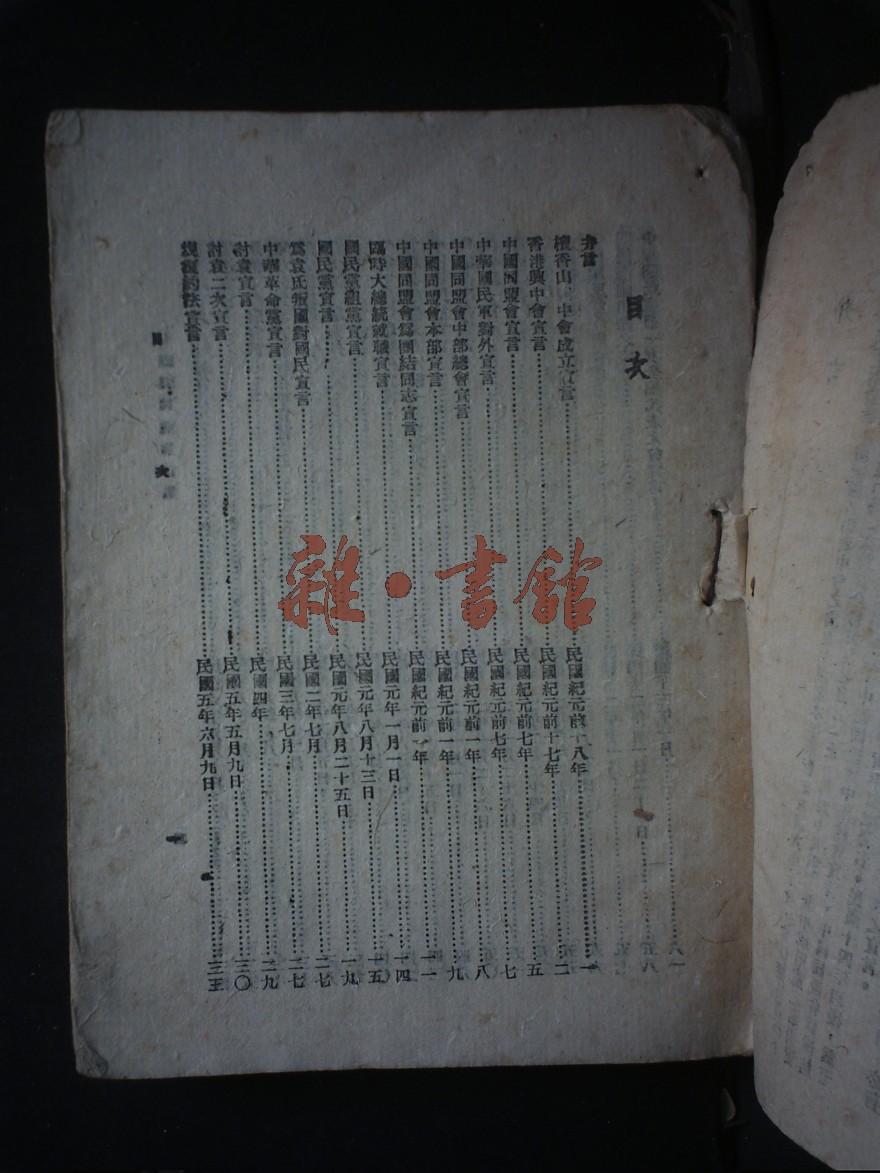 目次
弁言
檀香山 中會成立宣言……民國紀元前十八年……一
香港興中會宣言……民國紀元前十七年……二
中國同盟會宣言……民國紀元前七年……五
中華國民軍對外宣言……民國紀元前七年……七
中國同盟會中部總會宣言……民國紀元前一年……八
中國同盟會本部宣言……民國紀元前一年……九
中國同盟會爲團結同志宣言……民國紀元前一年……一一
臨時大總統就職宣言……民國元年一月一日……一四
國民黨組黨宣言……民國元年八月十三日……一五
國民黨宣言……民國元年八月二十五日……一九
爲袁氏叛國對國民宣言……民國二年七月……二七
中華革命黨宣言……民國三年七月……二七
討袁宣言……民國四年……二九
討袁二次宣言……民國五年五月九日……三〇
規復約法宣言……民國五年六月九日……三五
目次
雜·書館